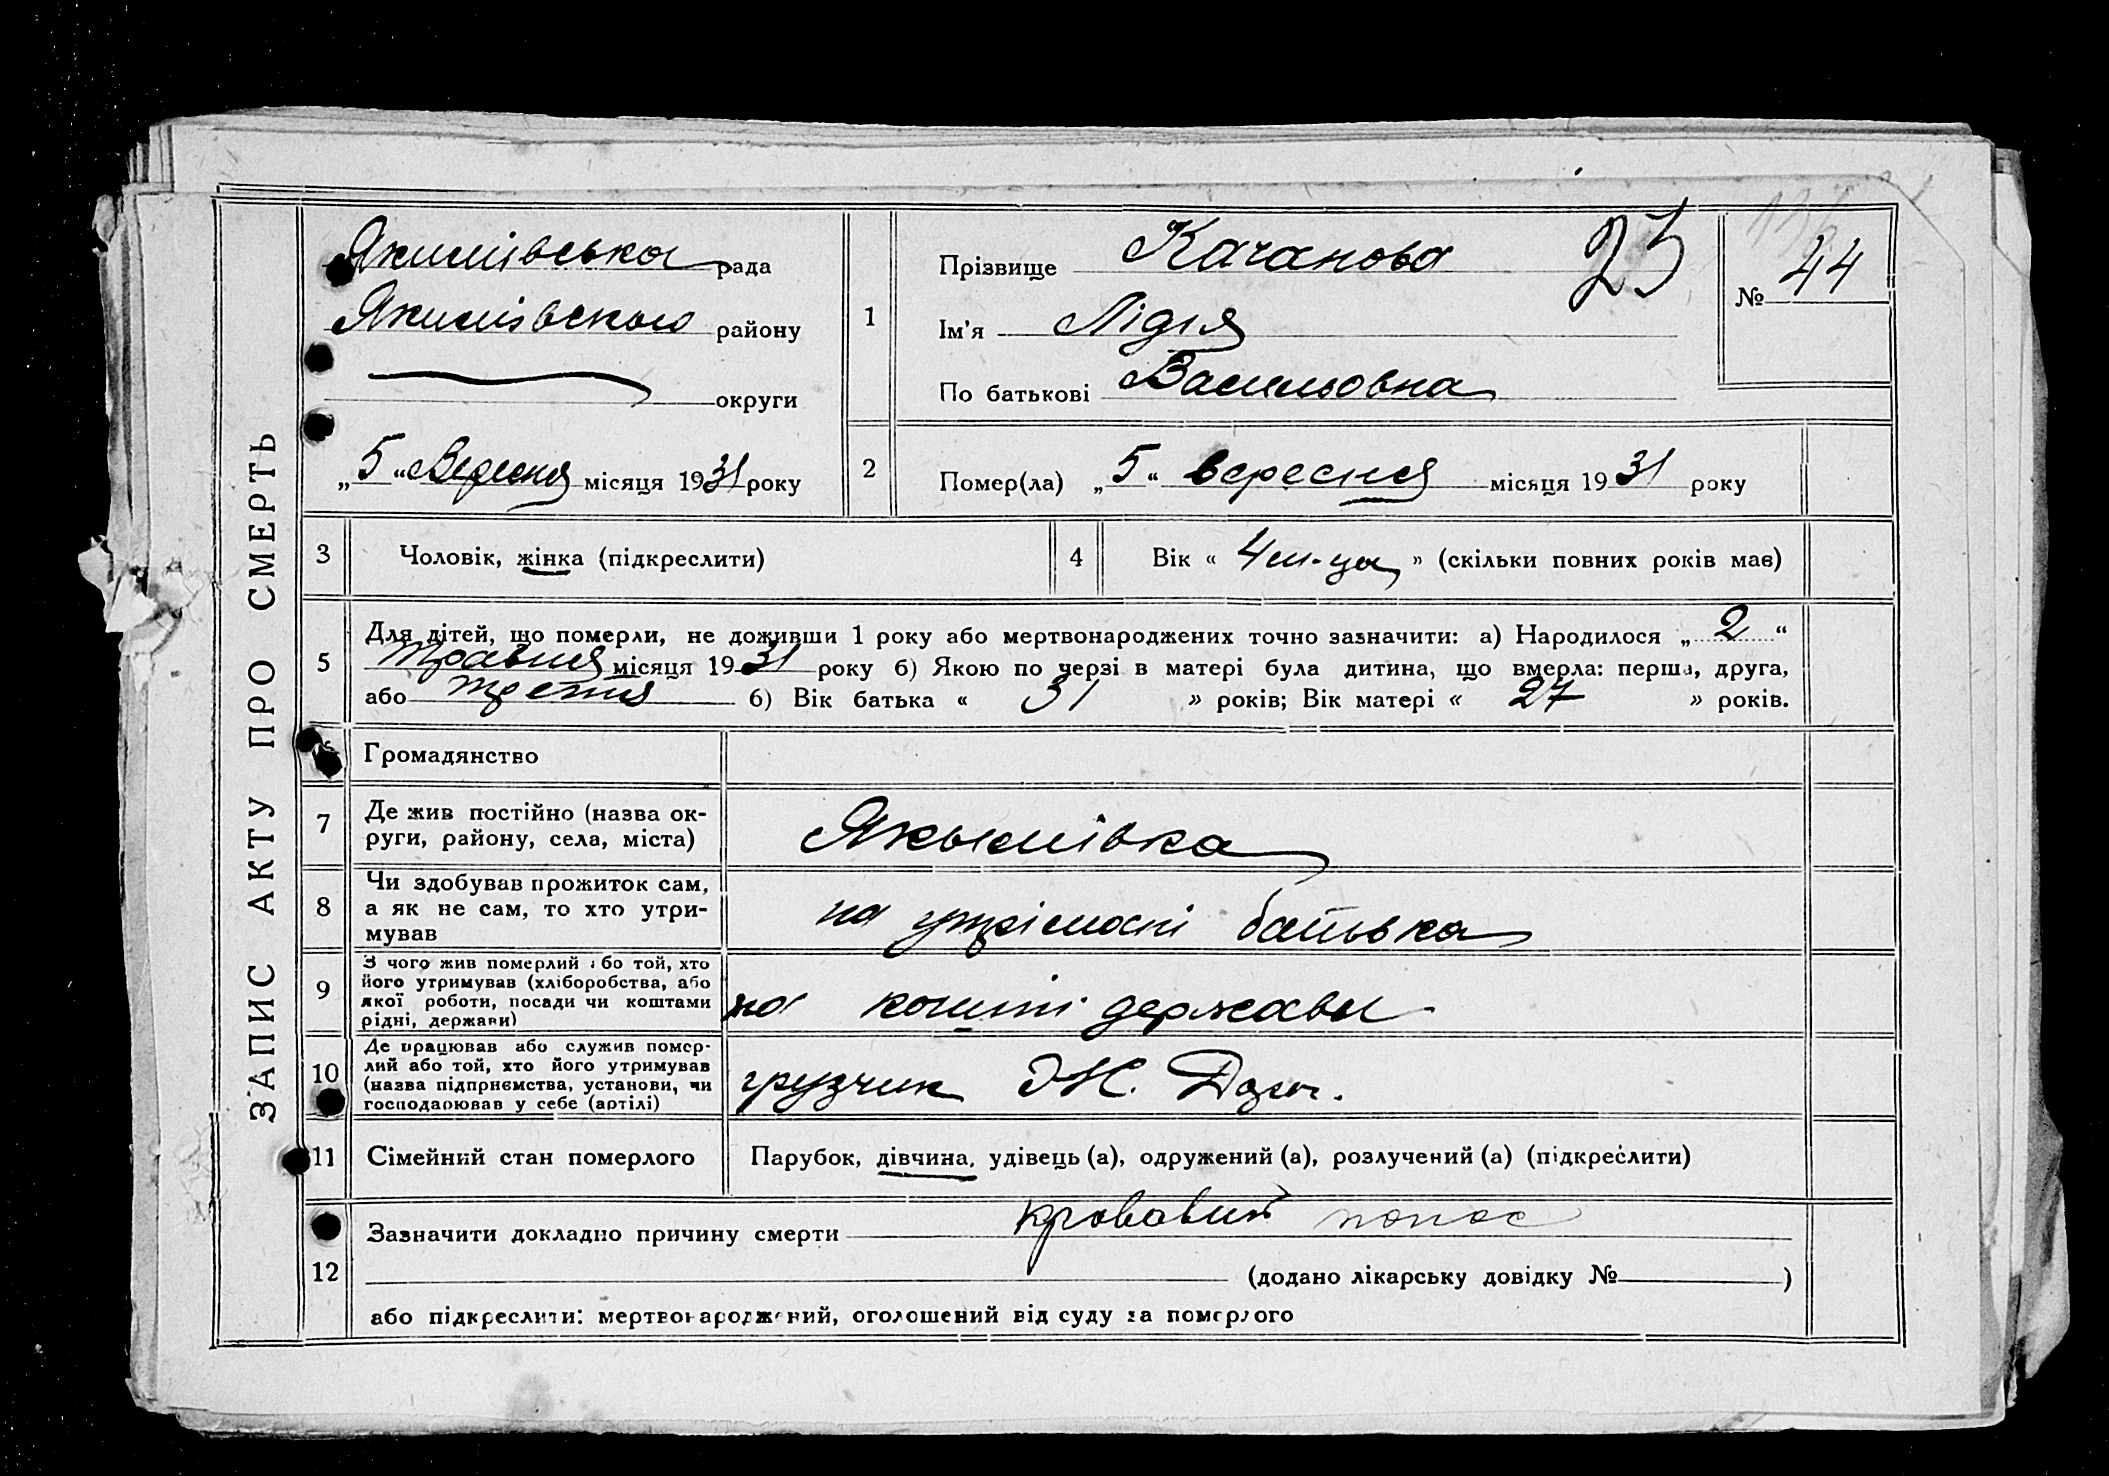 ЗАПИС АКТУ ПРО СМЕРТЬ
Якимівська рада
Якимівського району
округи
„5“ Вересня місяця 1931 року
1
Прізвище Качанова
25
№ 44
Ім'я Лідія
По батькові Васильовна
2
Помер(ла) „5“ вересня місяця 1931 року
3
Чоловік, жінка (підкреслити)
4
Вік « 4 м-ця » (скільки повних років має)
5
Для дітей, що померли, не доживши 1 року або мертвонароджених точно зазначити: а) Народилося „ 2 “
травня місяця 1931 року б) Якою по черзі в матері була дитина, що вмерла: перша, друга,
або третя б) Вік батька « 31 » років; Вік матері « 27 » років.
Громадянство
7
Де жив постійно (назва ок-
руги, району, села, міста)
Якымівка
8
Чи здобував прожиток сам,
а як не сам, то хто утри-
мував
на утрімані батька
9
З чого жив померлий або той, хто
його утримував (хліборобства, або
якої роботи, посади чи коштами
рідні, держави)
на кошті державы
10
Де працював або служив помер-
лий або той, хто його утримував
(назва підприємства, установи, чи
господарював у себе (артілі)
грузчик Ж. Дзоги.
11
Сімейний стан померлого
Парубок, дівчина, удівець (а), одружений (а), розлучений (а) (підкреслити)
12
Зазначити докладно причину смерти кровавий понос
(додано лікарську довідку № )
або підкреслити: мертвонароджений, оголошений від суду за померлого